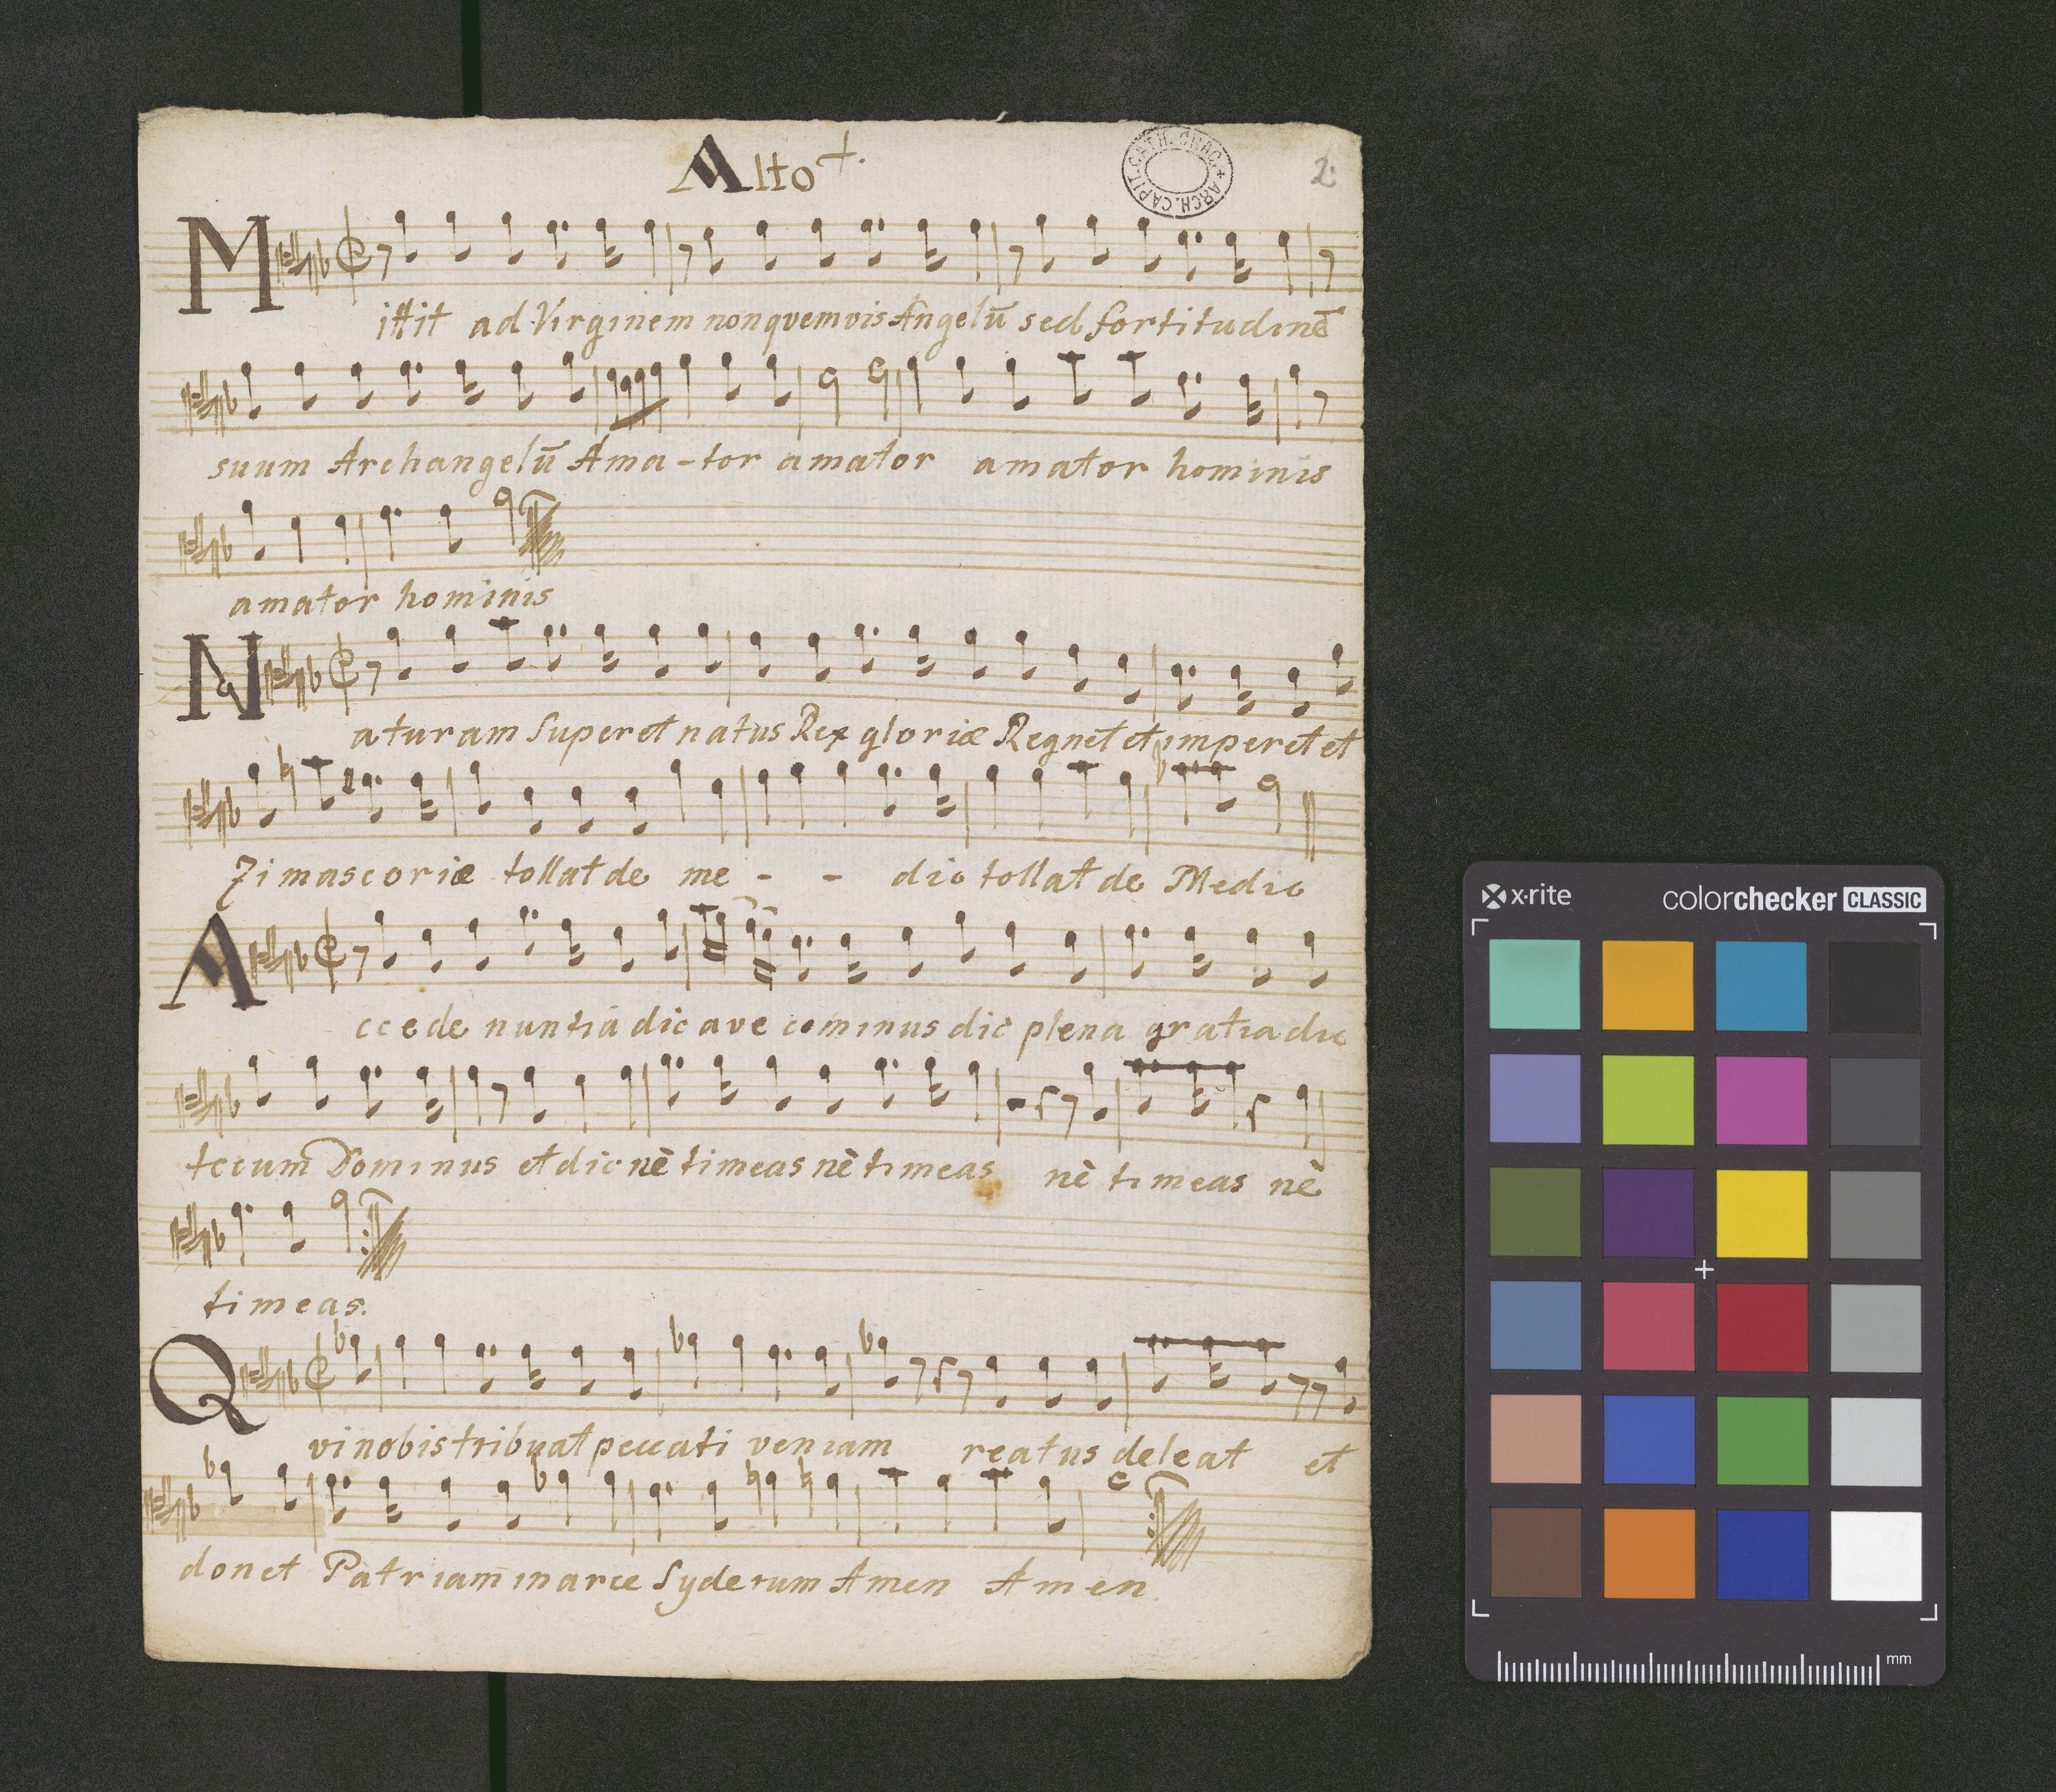 Alto +.
CAPIT. CATH. CRAC. + ARCH.
2.
Mittit ad Virginem non qvemvis Angelū sed fortitudinē
suum Archangelū Ama - tor amator amator hominis
amator hominis
Naturam Superet natus Rex gloriæ Regnet et imperet et
Zimascoriæ tollat de me - - dio tollat de Medio
Accede nuntia dic ave cominus dic plena gratia dic
tecum Dominus et dic nè timeas nè timeas nè timeas nè
timeas.
Qvi nobis tribuat peccati veniam reatus deleat et
donet Patriam in arce Syderum Amen Amen.
x-rite
colorchecker CLASSIC
mm